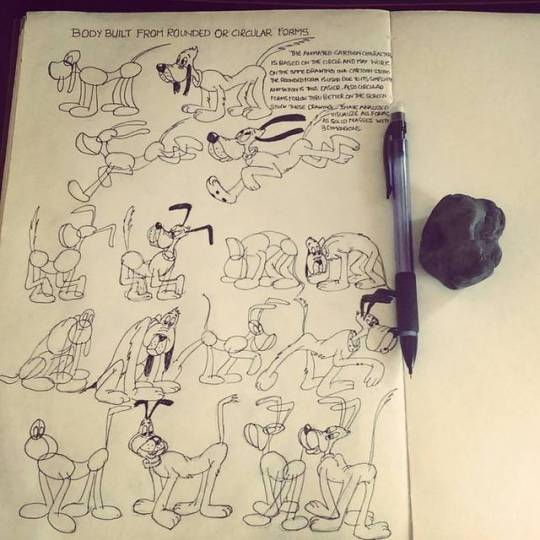 BODY BUILT FROM ROUNDED OR CIRCULAR FORMS.
THE ANIMATED CARTOON CHARACTER
IS BASED ON THE CIRCLE AND MAY WORK
ON THE SAME DRAWING IN A CARTOON STUDIO
THE ROUNDED FORM IS USED DUE TO ITS SIMPLICITY
ANIMATION IS THUS EASIER. ALSO CIRCULAR
FORMS FOLLOW THRU BETTER ON THE SCREEN
STUDY THESE DRAWINGS
VISUALIZE ALL FORMS
AS SOLID MASSES WITH
3 DIMENSIONS.